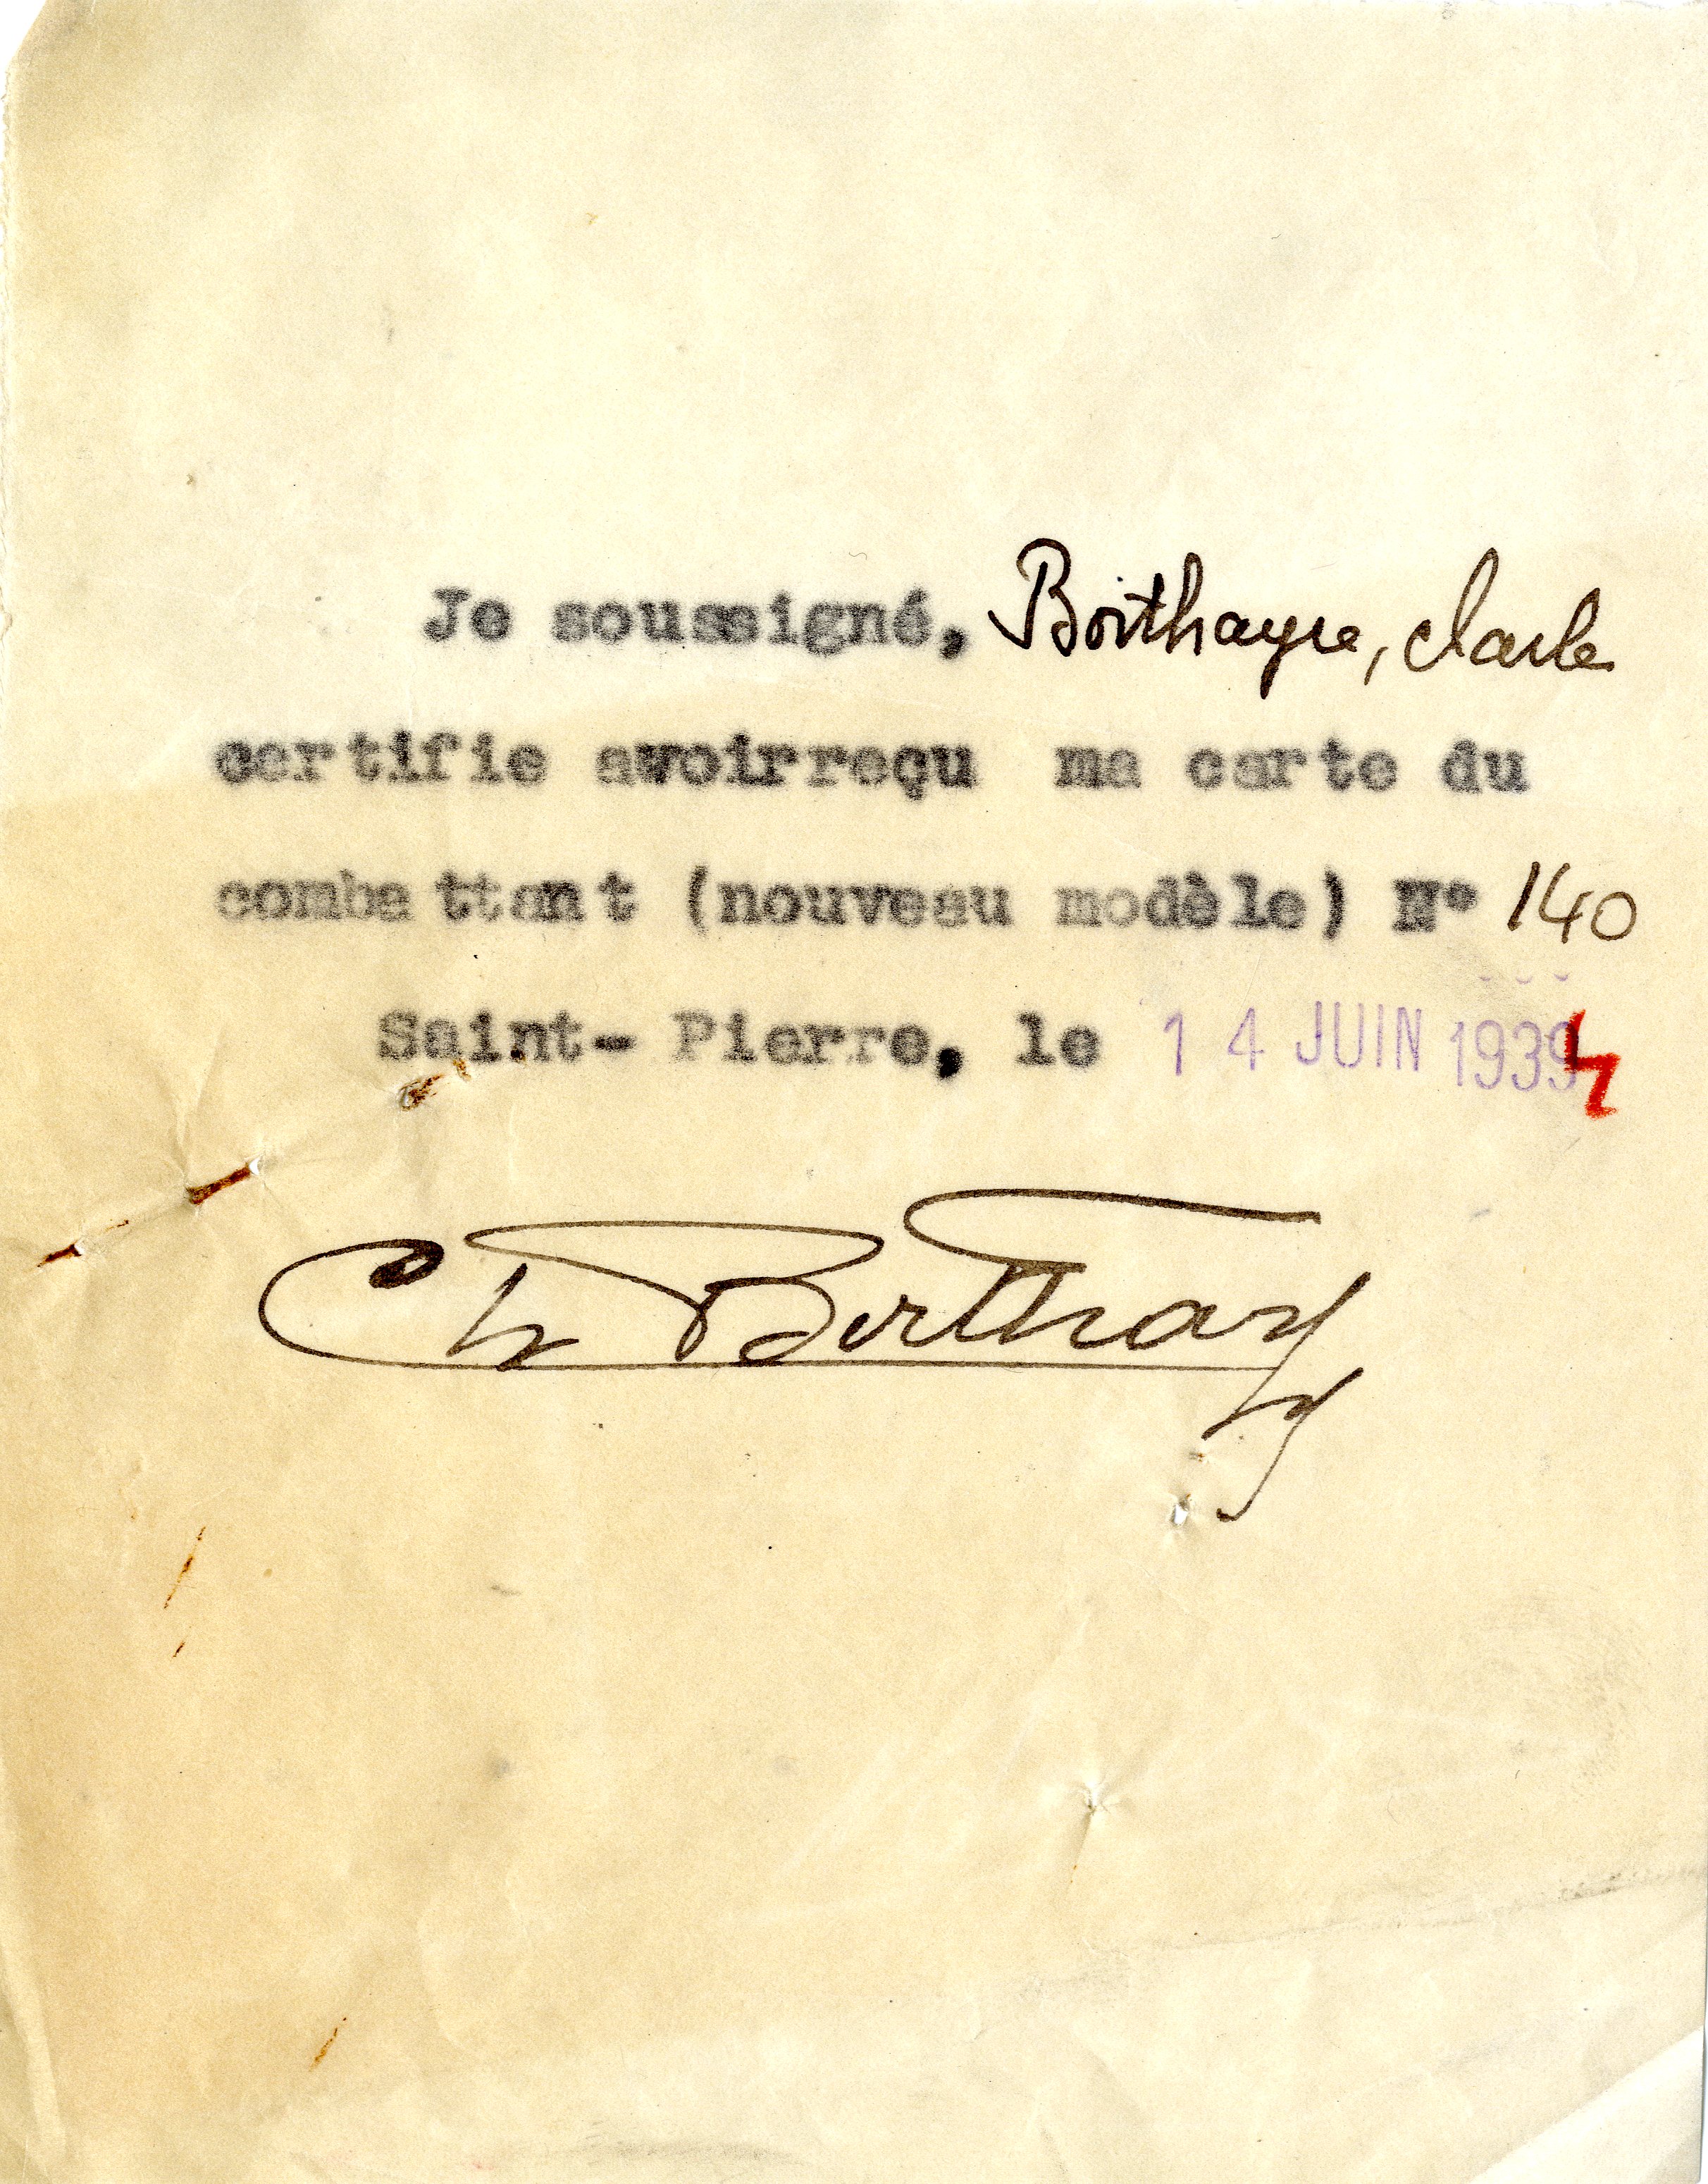 Je soussigné, Borthayre, Charle
certifie avoirreçu ma carte du
combattant (nouveau modèle) N° 140
Saint- Pierre, le 14 JUIN 1939
Ch Borthay